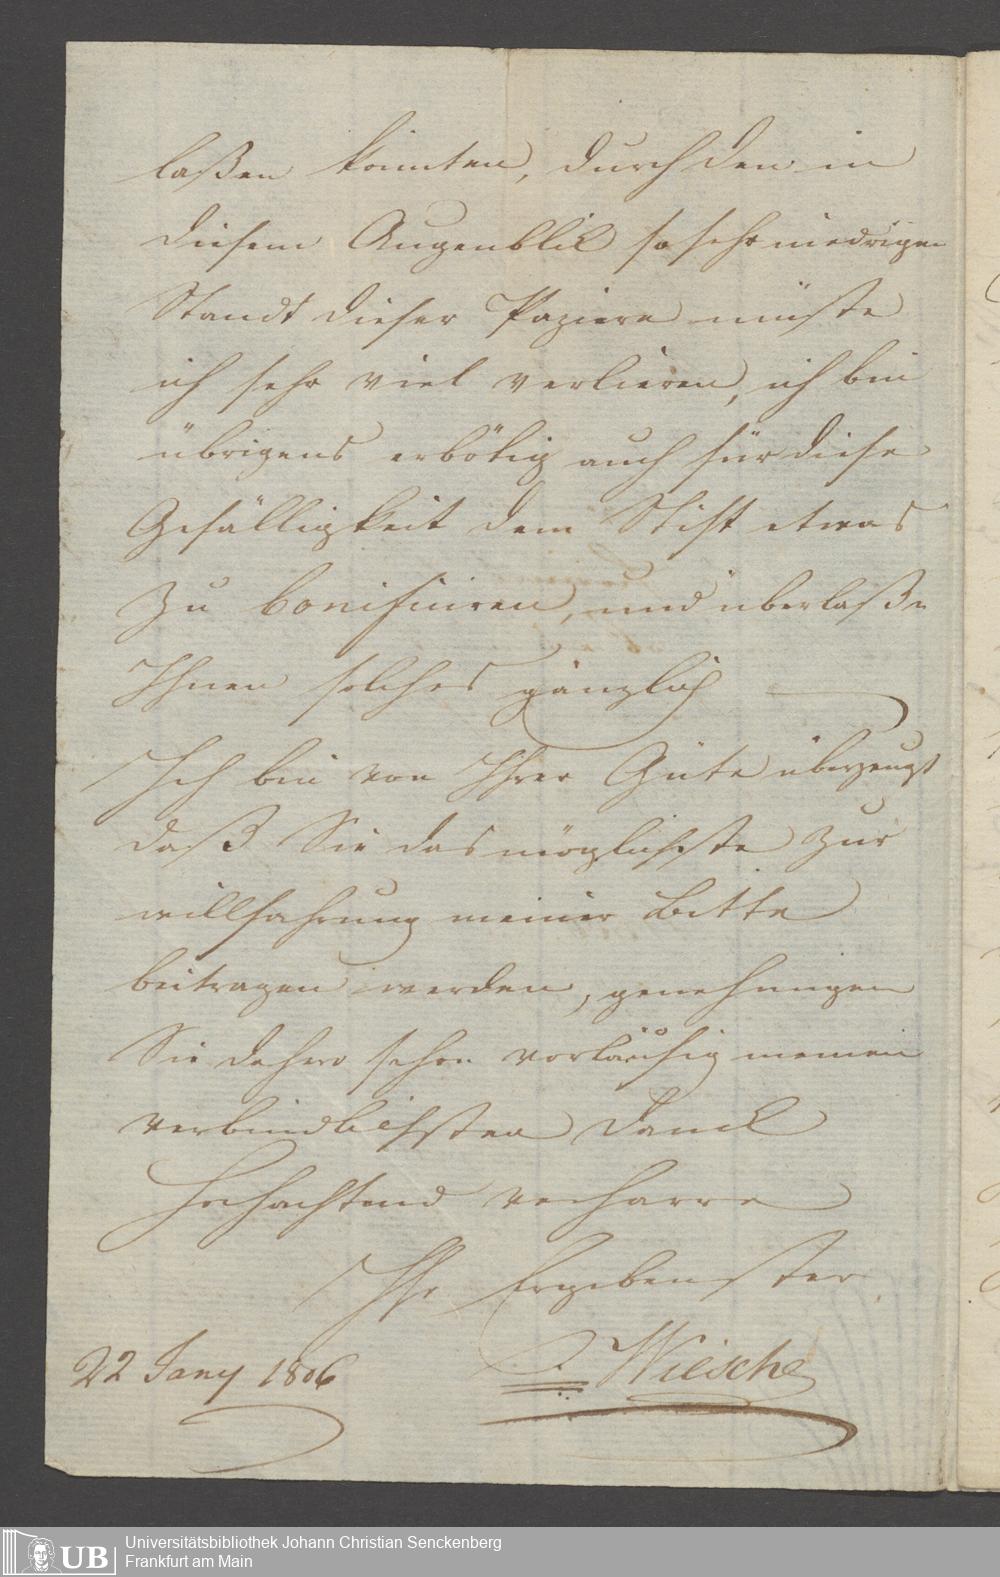 laßen könnten, durch den in
diesem Augenblick so sehr niedrigen
Standt dieser Papiere müste
ich sehr viel verlieren, ich bin
übrigens erbötig auch für diese
Gefälligkeit dem Stift etwas
zu bonificiren, und überlaße
Ihnen solches gänzlich
Ich bin von Ihrer Güte überzeugt
daß Sie das möglichste zur
willfahrung meiner Bitte
beitragen werden, genehmigen
Sie dahero schon vorläufig meinen
verbindlichsten Danck
Hochachtend verharre
Ihr Ergebenster
Wiesche
22 Jany 1806
UB
Universitätsbibliothek Johann Christian Senckenberg
Frankfurt am Main